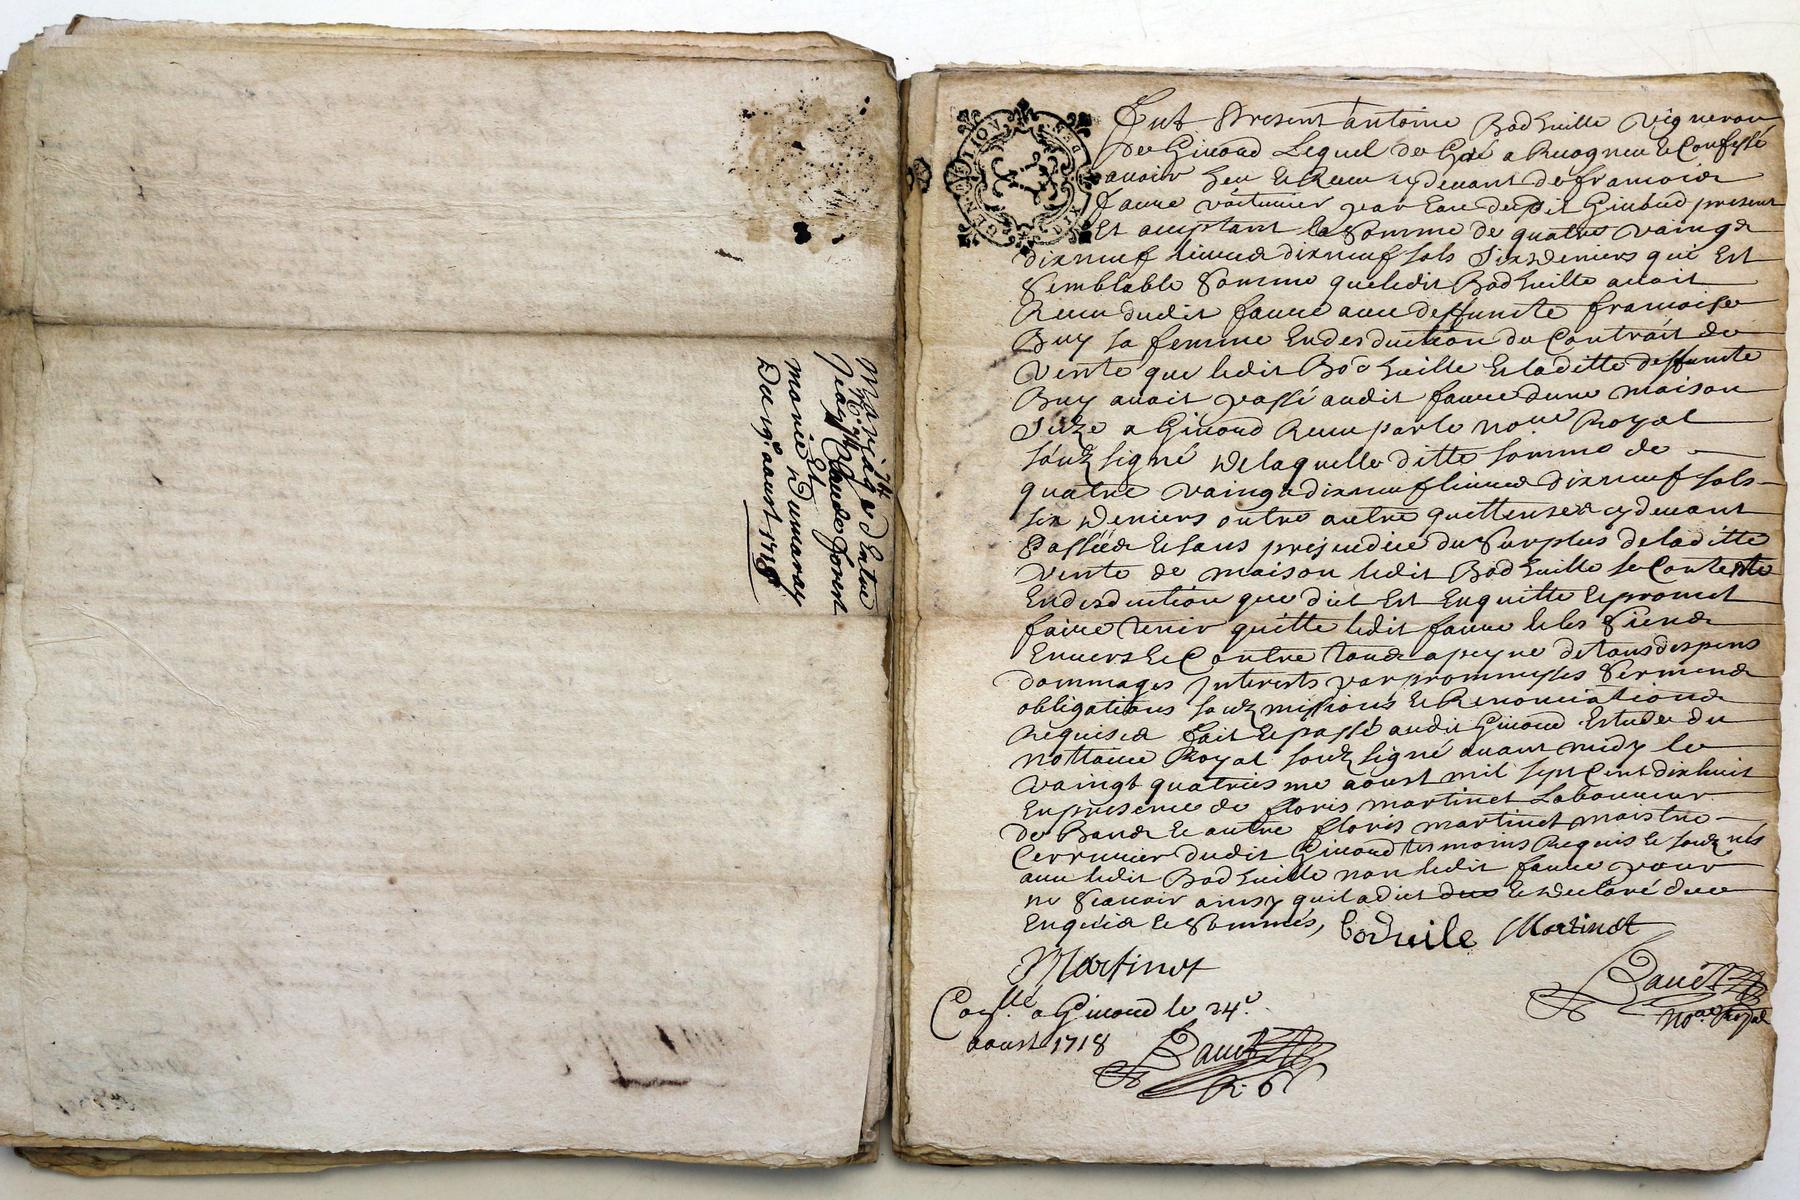 Mariage Entre
Jean Claude forest
Et
marie Dumaray
Du 19e aoust 1718
GEN MOULION
Fut Present antoine Bodhuille vigneron
de Giuord Lequel de Gré a Recogneu & Confessé
auoir heu & Receu cydeuant de francois
faure voiturier par Eau dudit Giuord present
Et acceptant la somme de quatre vaingt
dixneuf liures dixneuf sols six deniers qui Est
semblable somme queledit Bodhuille auoit
Receu dudit faure auec deffuncte francoise
Buy sa femme En desduction du Contrait de
vente que ledit Bodhuille & laditte deffuncte
Buy auoit passé audit faure dune maison
size a Giuord Receu par le no.re Royal
souz signé De laquelle ditte somme de
quatre vaingt dixneuf liures dixneuf sols
six deniers outre autre quittances cydeuant
Passées & sans prejudice du surplus de laditte
vente de maison ledit Bodhuille se Contente
En desduction que dict Est En quitte & promet
faire tenir quitte ledit faure & les siens
Enuers & Contre tous a peyne de tous despens
dommages Interests par promesses sermens
obligations souzmissions & Renonciations
Requises fait & passé audit Giuord Estude du
nottaire Royal souz signé auant midy le
vaingt quatriesme aoust mil sept Cent dixhuit
En presence de floris martinet Laboureur
de Bans & autre floris martinet maistre
Cerrurier dudit Giuord tesmoins Requis & souz nés
auec ledit Bodhuille non ledit faure pour
ne scauoir ainsy quil a dict & declaré deue
Enquis & sommés,
bodhuile Martinet
Martinet
no.re Royal
Con.llé a Giuord le 24e
aoust 1718